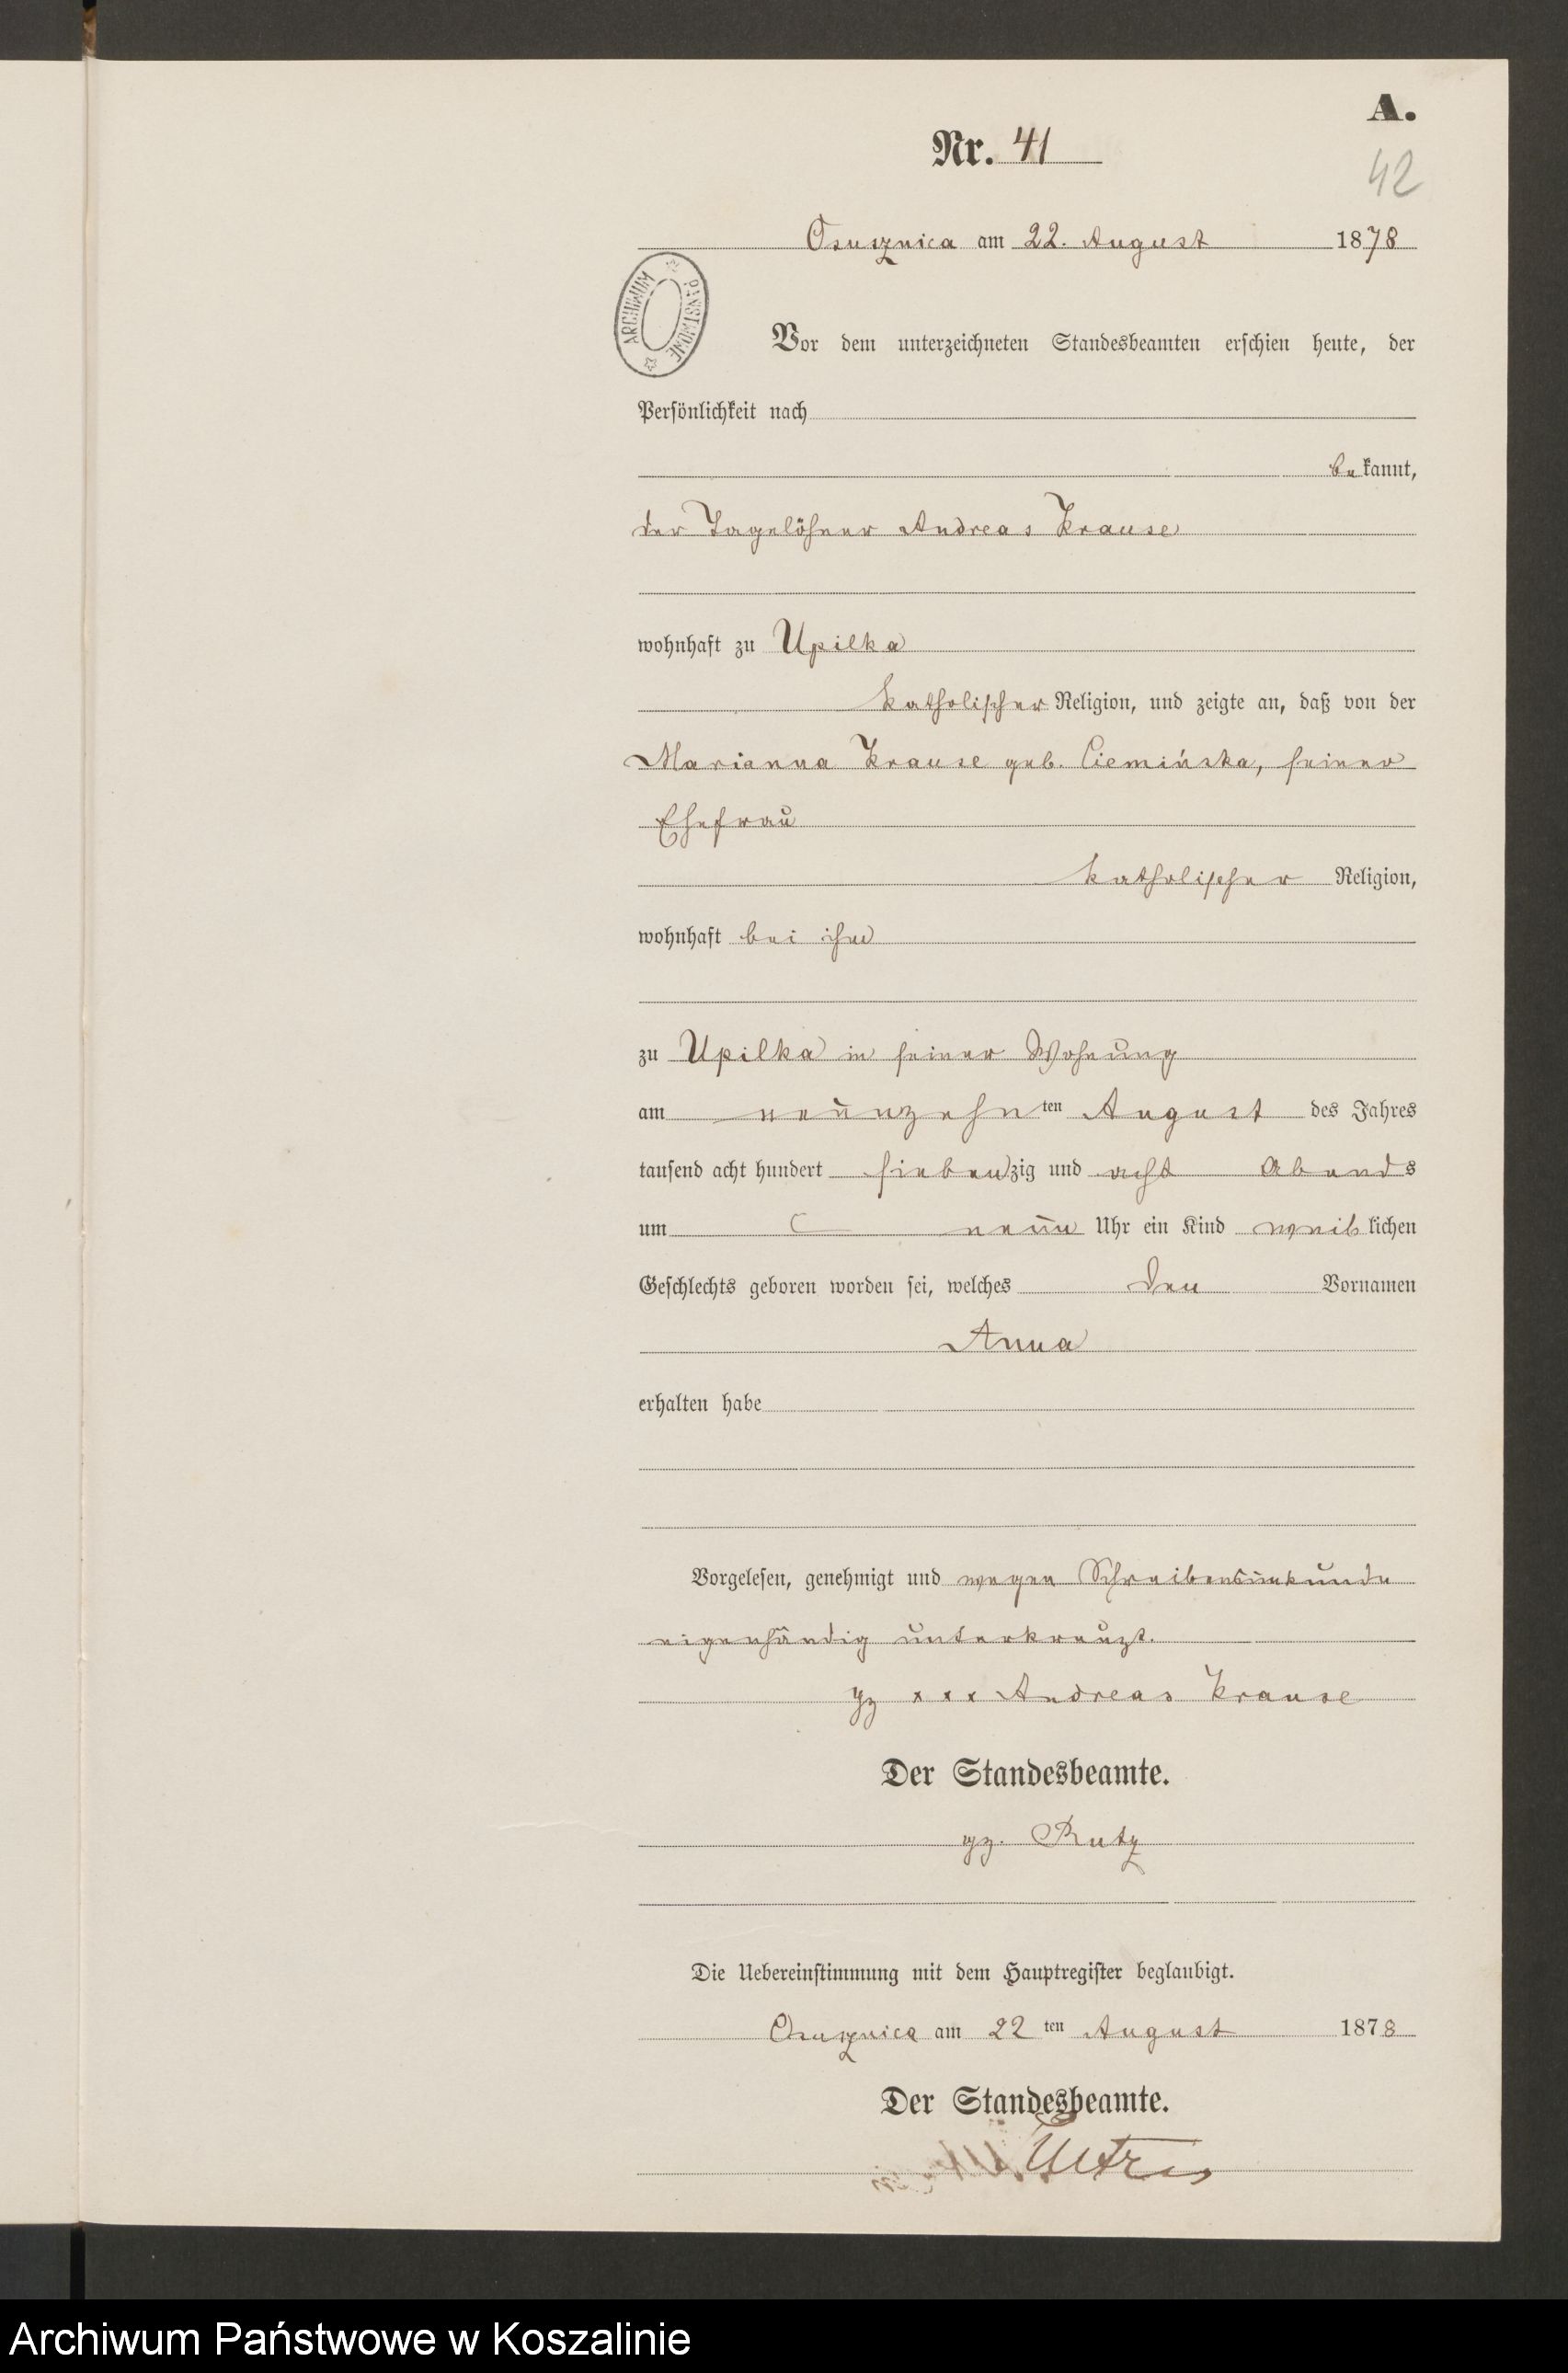 A.
Nr. 41
42
Osusznica am 22. August 1878
ARCHIWUM PAŃSTWOWE
Vor dem unterzeichneten Standesbeamten erschien heute, der
Persönlichkeit nach
bekannt,
der Tagelöhner Andreas Krause
wohnhaft zu Upilka
katholischer Religion, und zeigte an, daß von der
Marianna Krause geb. Ciemińska, seiner
Ehefrau
katholischer Religion,
wohnhaft bei ihm
zu Upilka in seiner Wohnung
am neunzehnten August des Jahres
tausend acht hundert siebenzig und acht Abends
um neun Uhr ein Kind weiblichen
Geschlechts geboren worden sei, welches den Vornamen
Anna
erhalten habe
Vorgelesen, genehmigt und wegen Schreibensunkunde
eigenhändig unterkreuzt.
gz xxx Andreas Krause
Der Standesbeamte.
gz. Rutz
Die Uebereinstimmung mit dem Hauptregister beglaubigt.
Osusznica am 22ten August 1878
Der Standesbeamte.
Archiwum Państwowe w Koszalinie